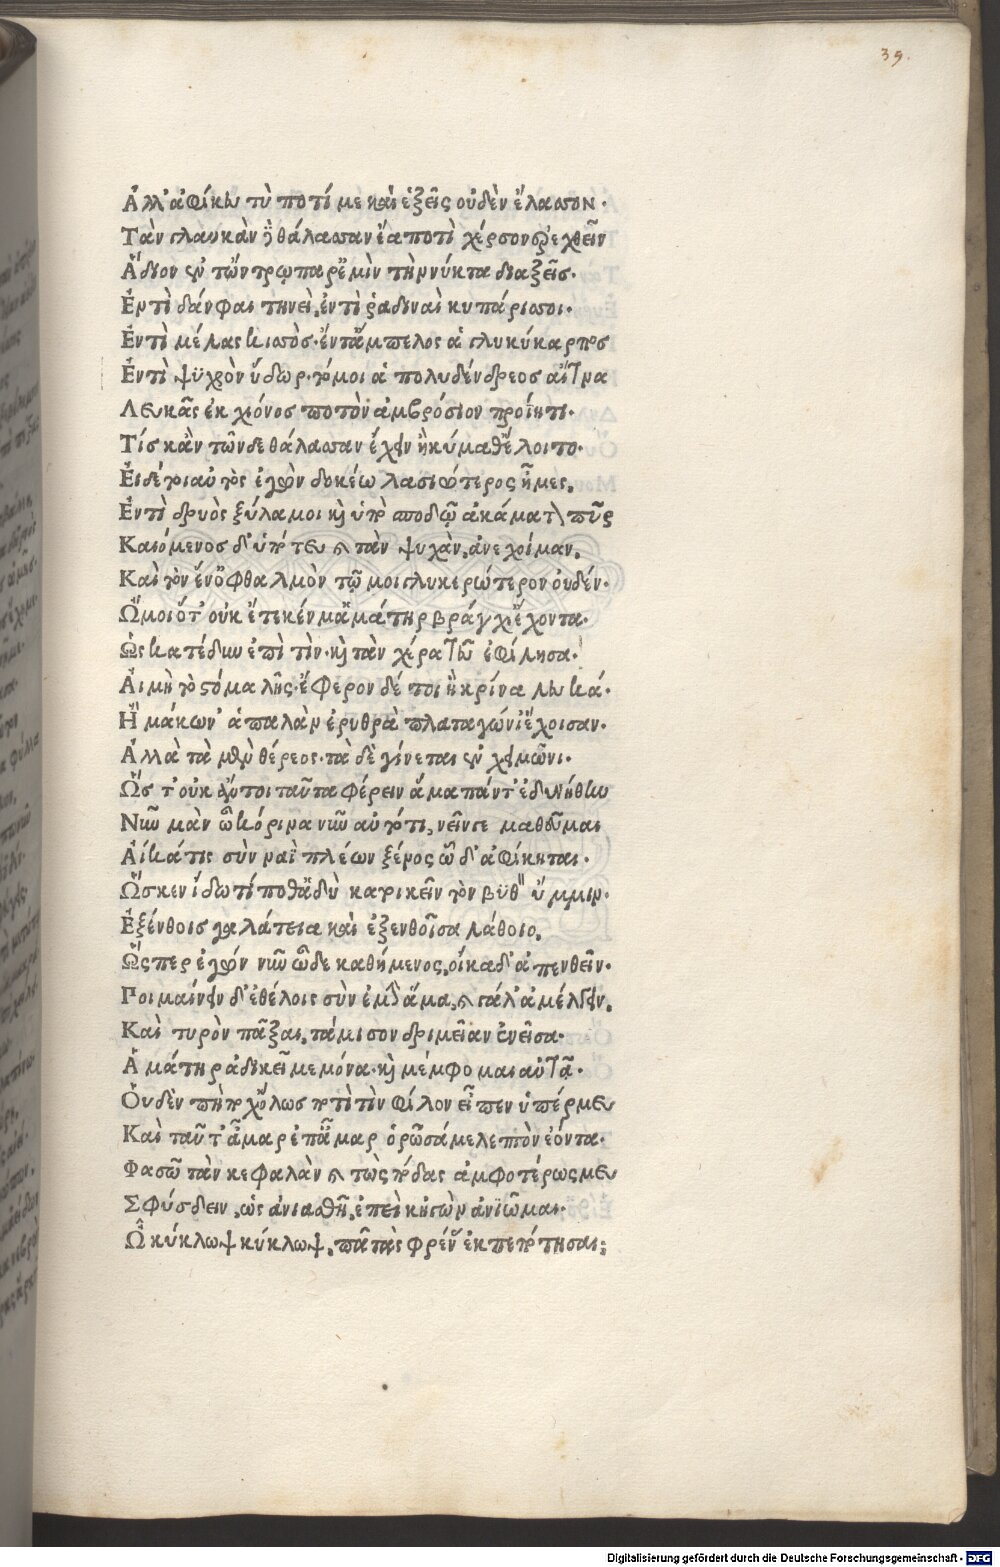 39.
Ἀλλ' ἀφίκευ τὺ ποτί με καὶ ἑξεῖς οὐδὲν ἔλασσον·
Τὰν γλαυκὰν δὲ θάλασσαν ἔα ποτὶ χέρσον ὀρεχθεῖν
Ἅδιον ἐν τὤντρῳ παρ' ἐμὶν τὴν νύκτα διαξεῖς·
Ἐντὶ δάφναι τηνεὶ, ἐντὶ ῥαδιναὶ κυπάρισσοι·
Ἐντὶ μέλας κισσὸς· ἔντ' ἄμπελος ἁ γλυκύκαρπος
Ἐντὶ ψῦχρὸν ὕδωρ· τό μοι ἁ πολυδένδρεος αἴτνα
Λευκᾶς ἐκ χιόνος ποτὸν ἀμβρόσιον προΐητι·
Τίς κἂν τῶνδε θάλασσαν ἔχειν ἢ κύμαθ' ἕλοιτο·
Εἰ δέ τοι αὐτὸς ἐγὼν δοκέω λασιώτερος ἦμες,
Ἐντὶ δρυὸς ξύλα μοι καὶ ὑπὸ σποδῷ ἀκάματον πῦρ
Καιόμενος δ' ὑπὸ τεῦ καὶ τὰν ψυχὰν, ἀνεχοίμαν,
Καὶ τὸν ἕν' ὀφθαλμὸν τῷ μοι γλυκερώτερον οὐδέν·
Ὤμοι ὅτ' οὐκ ἔτεκέν μ' ἁ μάτηρ βράγχι' ἔχοντα·
Ὡς κατέδυν ἐπὶ τὶν· καὶ τὰν χέρα τεῦ ἐφίλησα·
Αἰ μὴ τὸ στόμα λῇς· ἔφερον δέ τοι ἢ κρίνα λευκά·
Ἢ μάκων' ἁπαλὰν ἐρυθρὰ πλαταγώνι' ἔχοισαν·
Ἀλλὰ τὰ μὲν θέρεος· τὰ δὲ γίνεται ἐν χειμῶνι·
Ὥστ' οὐκ ἄν τοι ταῦτα φέρειν ἅμα πάντ' ἐδυνήθην
Νῦν μὰν ὦ κόριον νῦν αὐτότι, νεῖν γε μαθεῦμαι
Αἴ κά τις σὺν ναῒ πλέων ξένος ὧδ' ἀφίκηται·
Ὥς κεν ἴδω τί ποθ' ἁδὺ κατοικεῖν τὸν βυθὸν ὔμμιν·
Ἐξένθοις γαλάτεια καὶ ἐξενθοῖσα λάθοιο,
Ὥς περ ἐγών νῦν ὧδε καθήμενος, οἴκαδ' ἀπενθεῖν·
Ποιμαίνειν δ' ἐθέλοις σὺν ἐμὶν ἅμα, καὶ γάλ' ἀμέλγειν,
Καὶ τυρὸν πᾶξαι, τάμισον δριμεῖαν ἐνεῖσα·
Ἁ μάτηρ ἀδικεῖ με μόνα· καὶ μέμφομαι αὐτᾷ·
Οὐδὲν πήποχ' ὅλως ποτὶ τὶν φίλον εἶπεν ὑπέρ μευ
Καὶ ταῦτ' ἆμαρ ἐπ' ἆμαρ ὁρῶσά με λεπτὸν ἐόντα·
Φασῶ τὰν κεφαλὰν καὶ τὼς πόδας ἀμφοτέρως μευ
Σφύσδειν, ὡς ἀνιαθῇ, ἐπεὶ κἠγὼν ἀνιῶμαι·
Ὦ κύκλωψ κύκλωψ, πᾶ τὰς φρένας ἐκπεπότησαι;
Digitalisierung gefördert durch die Deutsche Forschungsgemeinschaft - DFG